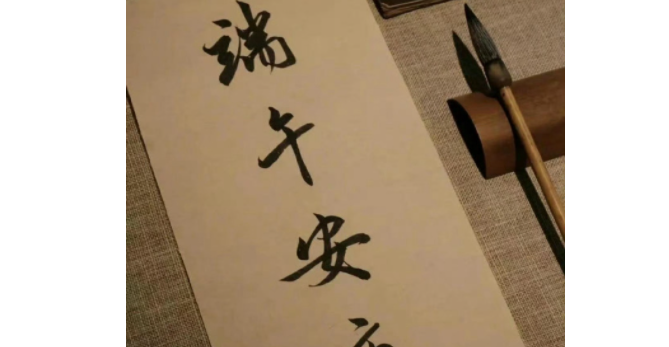 端午安